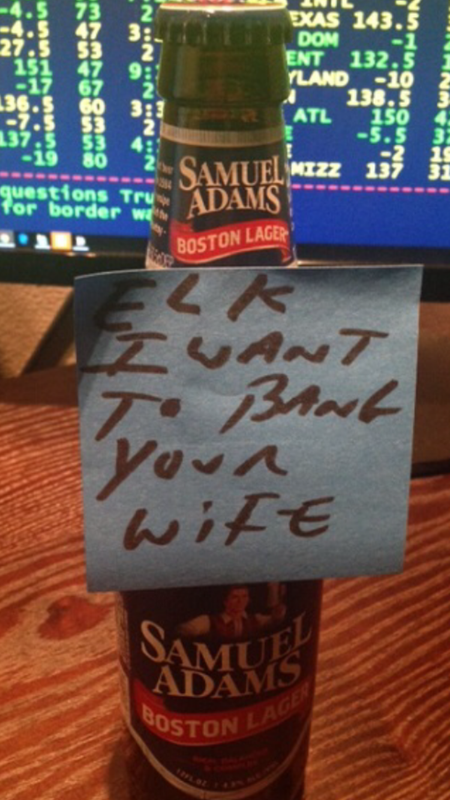 INTL -2
-4.5 73 2
-4.5 47 3: EXAS 143.5 3
27.5 53 2 DOM -1 2
151 47 9: ENT 132.5 1
-17 67 2 YLAND -10 2
136.5 60 3:3 138.5 3
-7.5 53 2 ATL 150 4
137.5 53 4: E -5.5 3
-19 80 2 -2 19
MIZZ 137 31
questions Tru
for border wa
SAMUEL
ADAMS
BOSTON LAGER
ELK
I WANT
TO BANG
YOUR
WIFE
SAMUEL
ADAMS
BOSTON LAGER